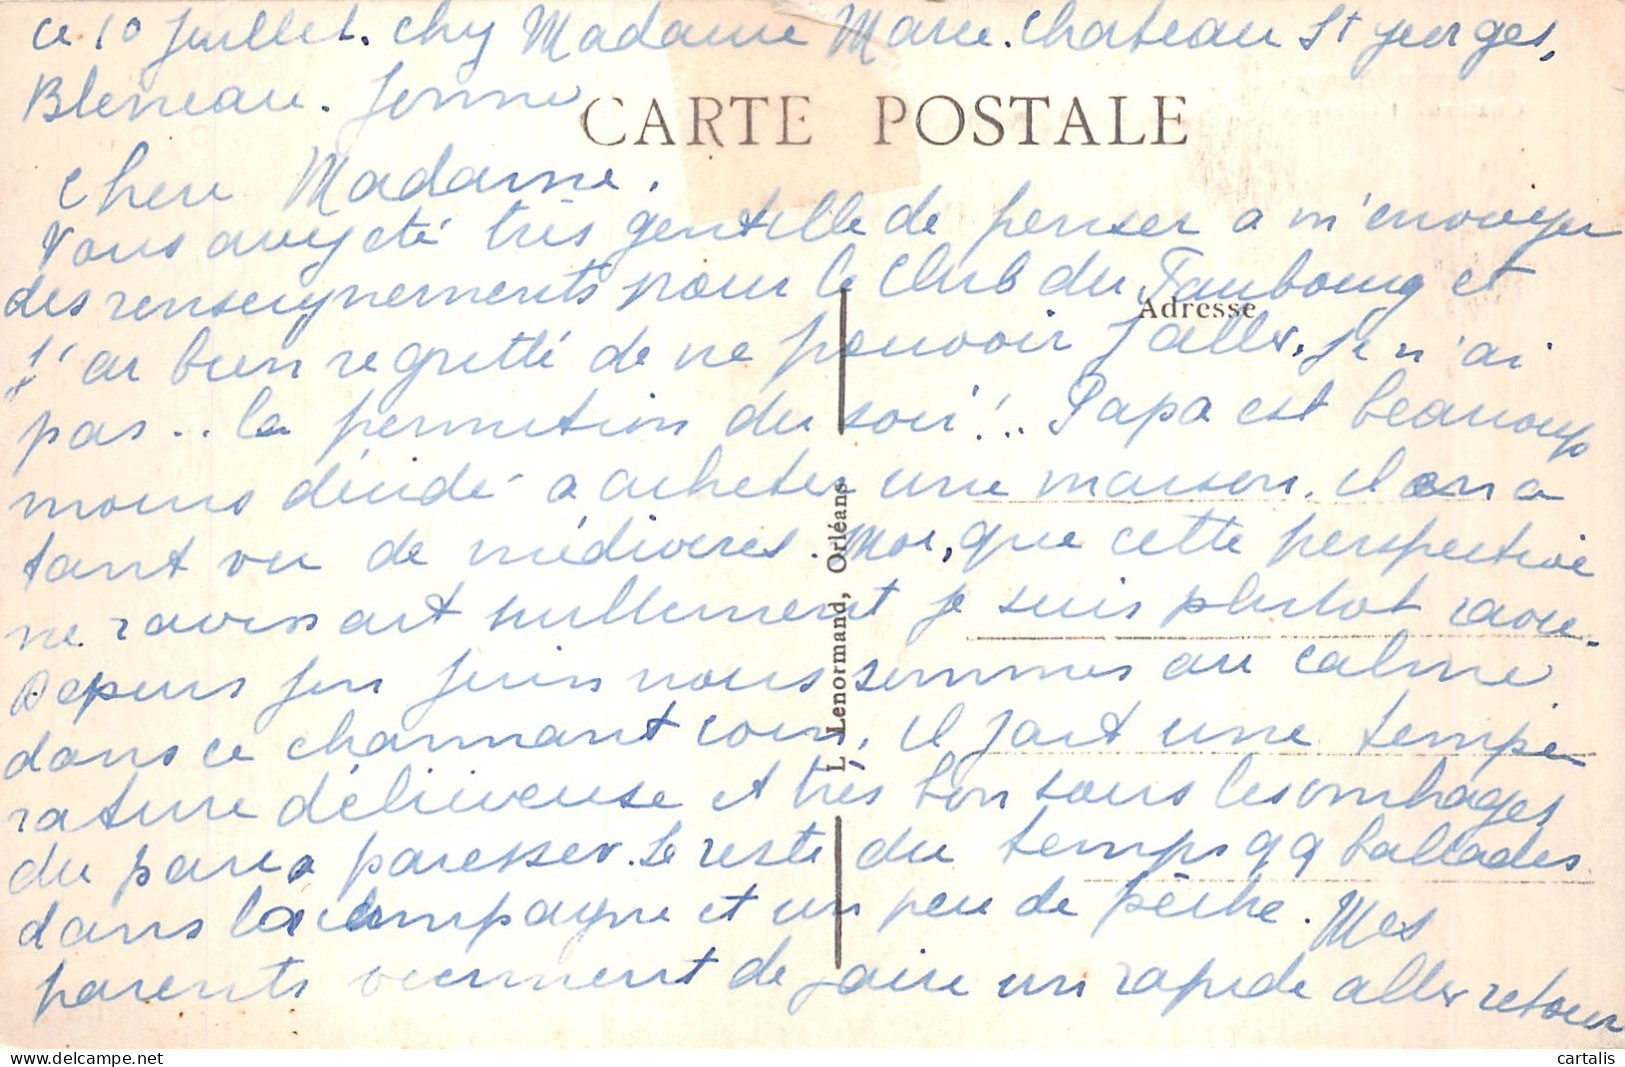 ce 10 Juillet. chez Madame Marie. Chateau St georges,
Bleneau. Yonne
CARTE POSTALE
Chere Madame,
Vous avez été très gentille de penser a m'envoyer
des renseignements pour le Club du Faubourg et
Adresse
J'ai bien regretté de ne pouvoir y aller, je n'ai
pas .. la permition du soir!.. Papa est beaucoup
moins décidé a acheter une maison, il en a
tant vu de médiocres. Moi, que cette perspective
ne ravissait nullement je suis plutot ravie.
Depuis fin Juin nous sommes au calme
dans ce charmant coin, il fait une tempé
rature délicieuse et très bon sous les ombrages
du parc a paresser. Le reste du temps qq ballades
dans la campagne et un peu de pêche. Mes
parents viennent de faire un rapide aller retour
L. Lenormand, Orléans
cartalis